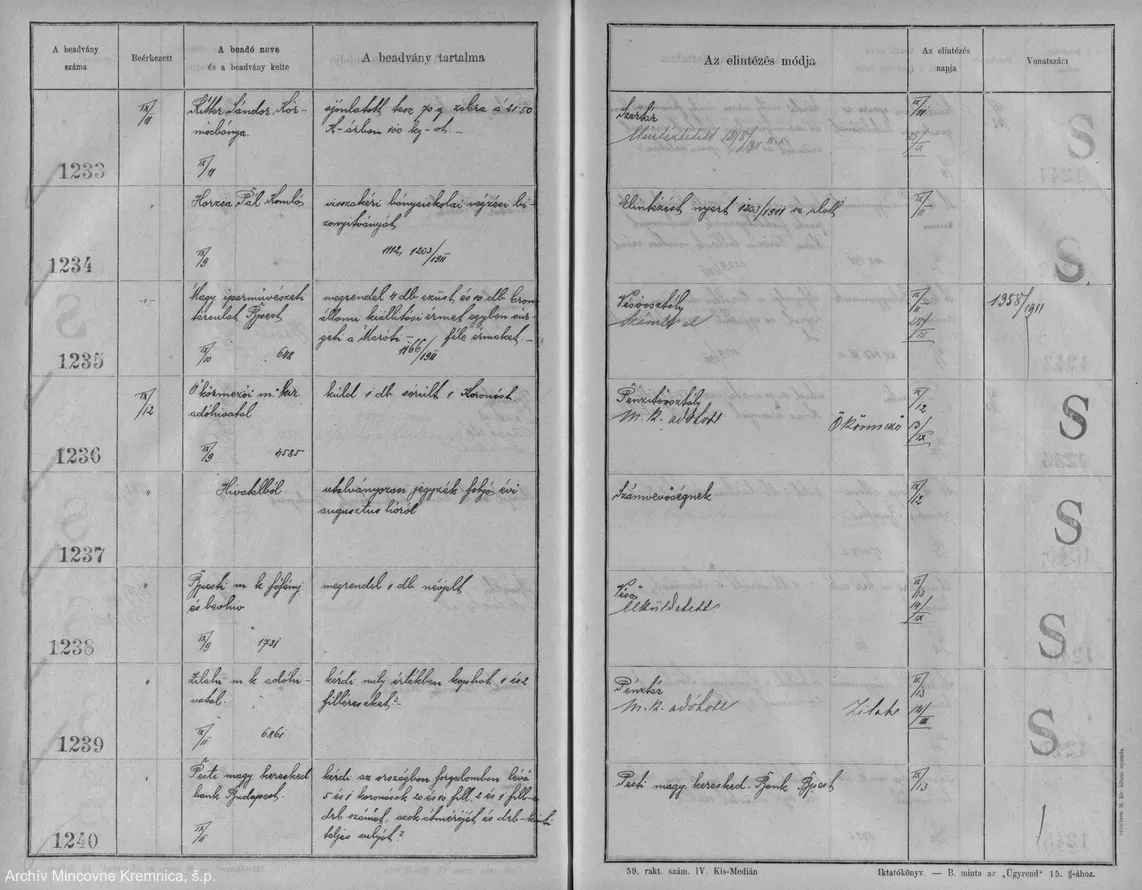 A beadvány
száma
Beérkezett
A beadó neve
és a beadvány kelte
A beadvány tartalma
Az elintézés módja
Az elintézés
napja
Vonatszám
1233
IX/11
Ritter Sándor Kör-
möczbánya.
IX/11
ajánlatott tesz 70 q zabra á 21·50
K-árban 100 kg-ot.
Szertár
IX/11
S
1234
"
Pál
IX/9
visszakéri bányaiskolai végzési bi-
zonyítványát
1112, 1203/1911
Elintézést nyert 1203/1911 sz. alatt
IX/11
S
1235
Magy. iparművészeti
társulat Bpest
IX/10 648
megrendel 4 db ezüst és 10 db bron
állami kiállítási érmet egyben sür-
geti a Maróti-féle érmeket.
1166/1911
Vésőosztály
IX/11
1358/1911
1236
IX/12
Ökörmezői m. kir
adóhivatal
IX/9 4585
küld 1 db sérült 1 Koronást.
Pénzverőosztály
M. k. adóhiv Ökörmező
IX/12
13/IX
S
1237
"
Hivatalból
utalványozási jegyzék folyó évi
augusztus hóról
Számvevőségnek
IX/12
S
1238
"
Bpesti m. k. főfémj
és beváltó
IX/9 1731
megrendel 1 db
Véső
Elküldetett
IX/13
14/IX
S
1239
"
Zilahi m. k. adóhi-
vatal.
IX/11 6861
kérdi mily értékben kaphat 1 és 2
filléreseket?
Pénztár
M. k. adóhiv Zilah
IX/13
14/IX
S
1240
"
Pesti magy. keresked
bank Budapest.
IX/11
kérdi az országban forgalomban lévő
5 és 1 koronások 20 és 10 fill. 2 és 1 fill-
drb számát, azok átmérőjét és drb-kinti
teljes súlyát?
Pesti magy. keresked. Bank Bpest
IX/13
59. rakt. szám. IV. Kis-Medián
Iktatókönyv. — B. minta az „Ügyrend" 15. §-ához.
Archív Mincovne Kremnica, š.p.